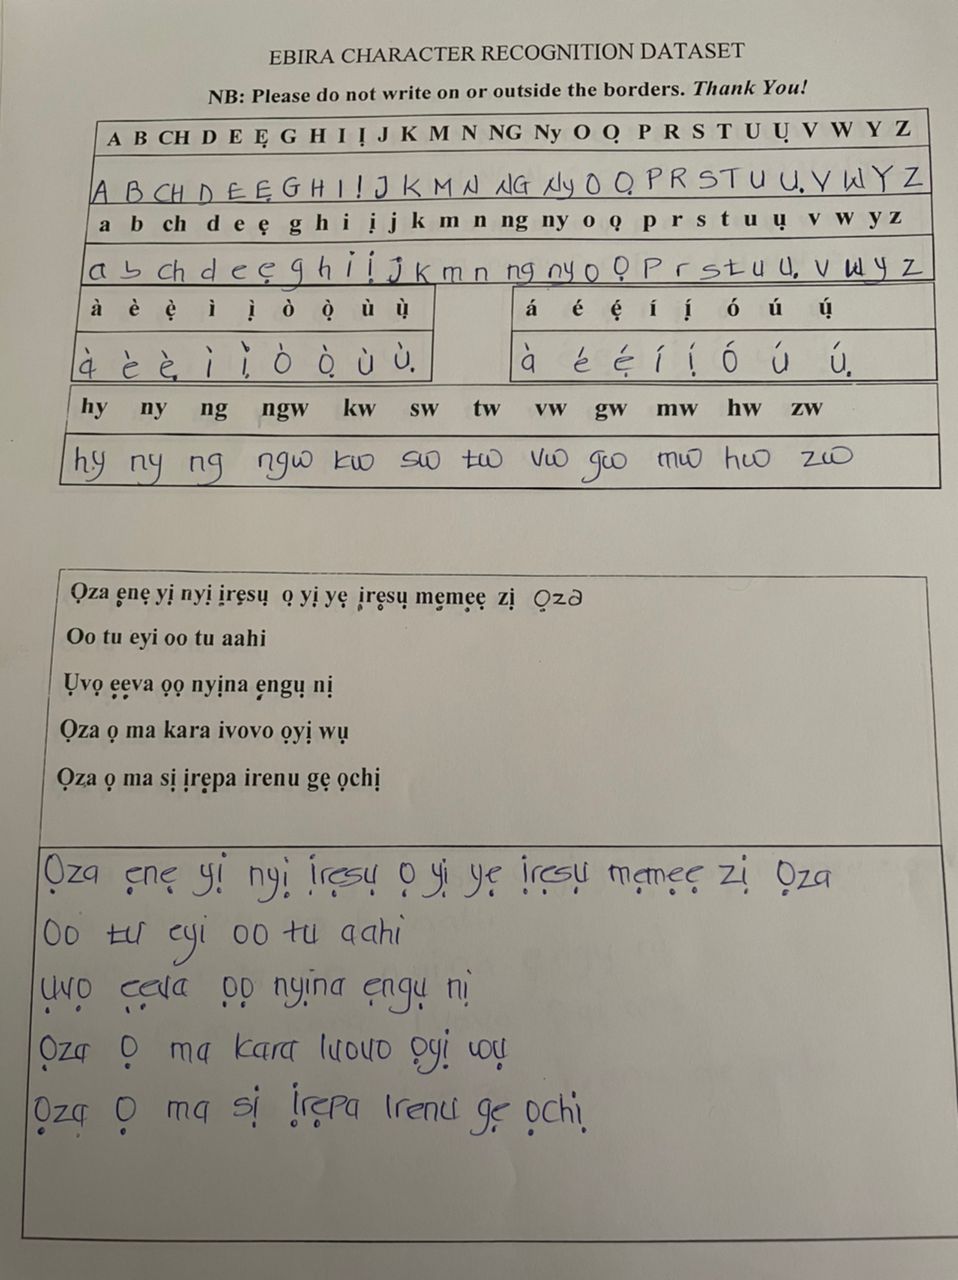 EBIRA CHARACTER RECOGNITION DATASET
NB: Please do not write on or outside the borders. Thank You!
A B CH D E Ẹ G H I Ị J K M N NG Ny O Ọ P R S T U Ụ V W Y Z
A B CH D E Ẹ G H I Ị J K M N NG Ny O Ọ P R S T U Ụ V W Y Z
a b ch d e ẹ g h i ị j k m n ng ny o ọ p r s t u ụ v w y z
a b ch d e ẹ g h i ị j k m n ng ny o ọ p r s t u ụ v w y z
à è ẹ̀ ì ị̀ ò ọ̀ ù ụ̀
á é ẹ́ í ị́ ó ú ụ́
à è ẹ̀ ì ị̀ ò ọ̀ ù ụ̀
à é ẹ́ í ị́ ó ú ụ́
hy ny ng ngw kw sw tw vw gw mw hw zw
hy ny ng ngw kw sw tw vw gw mw hw zw
Ọza ẹnẹ yị nyị ịrẹsụ ọ yị yẹ ịrẹsụ mẹmẹẹ zị Ọza
Oo tu eyi oo tu aahi
Ụvọ ẹẹva ọọ nyịna ẹngụ nị
Ọza ọ ma kara ivovo ọyị wụ
Ọza ọ ma sị ịrẹpa irenu gẹ ọchị
Ọza ẹnẹ yị nyị ịrẹsụ ọ yị yẹ ịrẹsụ mẹmẹẹ zị Ọza
Oo tu eyi oo tu aahi
Ụvọ ẹẹva ọọ nyịna ẹngụ nị
Ọza Ọ ma kara Ivovo ọyị wụ
Ọza Ọ ma sị ịrẹpa Irenu gẹ ọchị